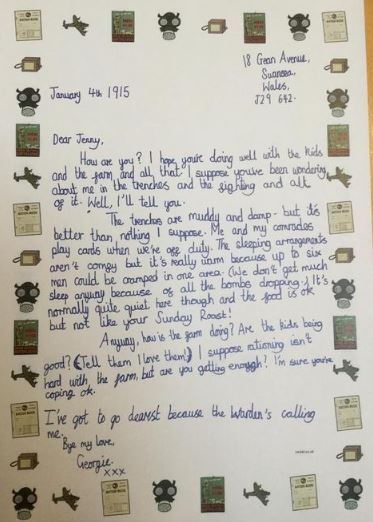 18 Gean Avenue,
Swansea,
Wales,
J29 642.
January 4th 1915
Dear Jenny,
How are you? I hope you're doing well with the kids
and the farm and all that. I suppose you've been wondering
about me in the trenches and the fighting and all
of it. Well, I'll tell you.
The trenches are muddy and damp - but its
better than nothing I suppose. Me and my comrades
play cards when we're off duty. The sleeping arrangements
aren't comfy but it's really warm because up to six
men could be cramped in one area. (We don't get much
sleep anyway because of all the bombs dropping.) It's
normally quite quiet here though and the food is ok
but not like your Sunday Roast!
Anyway, how is the farm doing? Are the kids being
good? (Tell them I love them!) I suppose rationing isn't
hard with the farm, but are you getting enough? I'm sure you're
coping ok.
I've got to go dearest because the Warden's calling
me.
Bye my love,
Georgie.
xxx